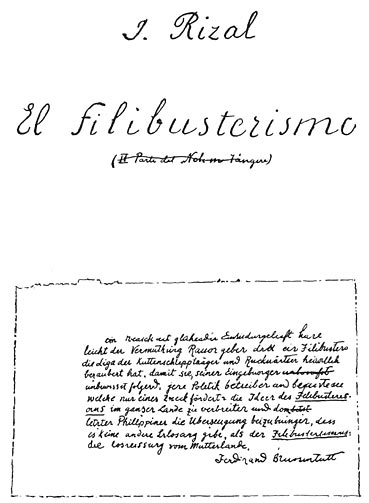 J. Rizal
El Filibusterismo
(II Parte del Noli me tángere)
ein Mensch mit
leicht der Vermuthung Raum geben dass ein Filibustero
die Idee der Kuttenschleppträger und
bezaubert hat, damit sie, seiner Eingebung
unbewusst folgend, jene Politik betreiben
welche nur einen Zweck fördert: die Ideen des Filibusteris-
mus im ganzen Lande zu verbreiten und
letzten Philippiner die Überzeugung beizubringen, dass
es keine andere Erlösung gibt, als der Filibusterismus:
die Losreissung vom Mutterlande.
Ferdinand Blumentritt